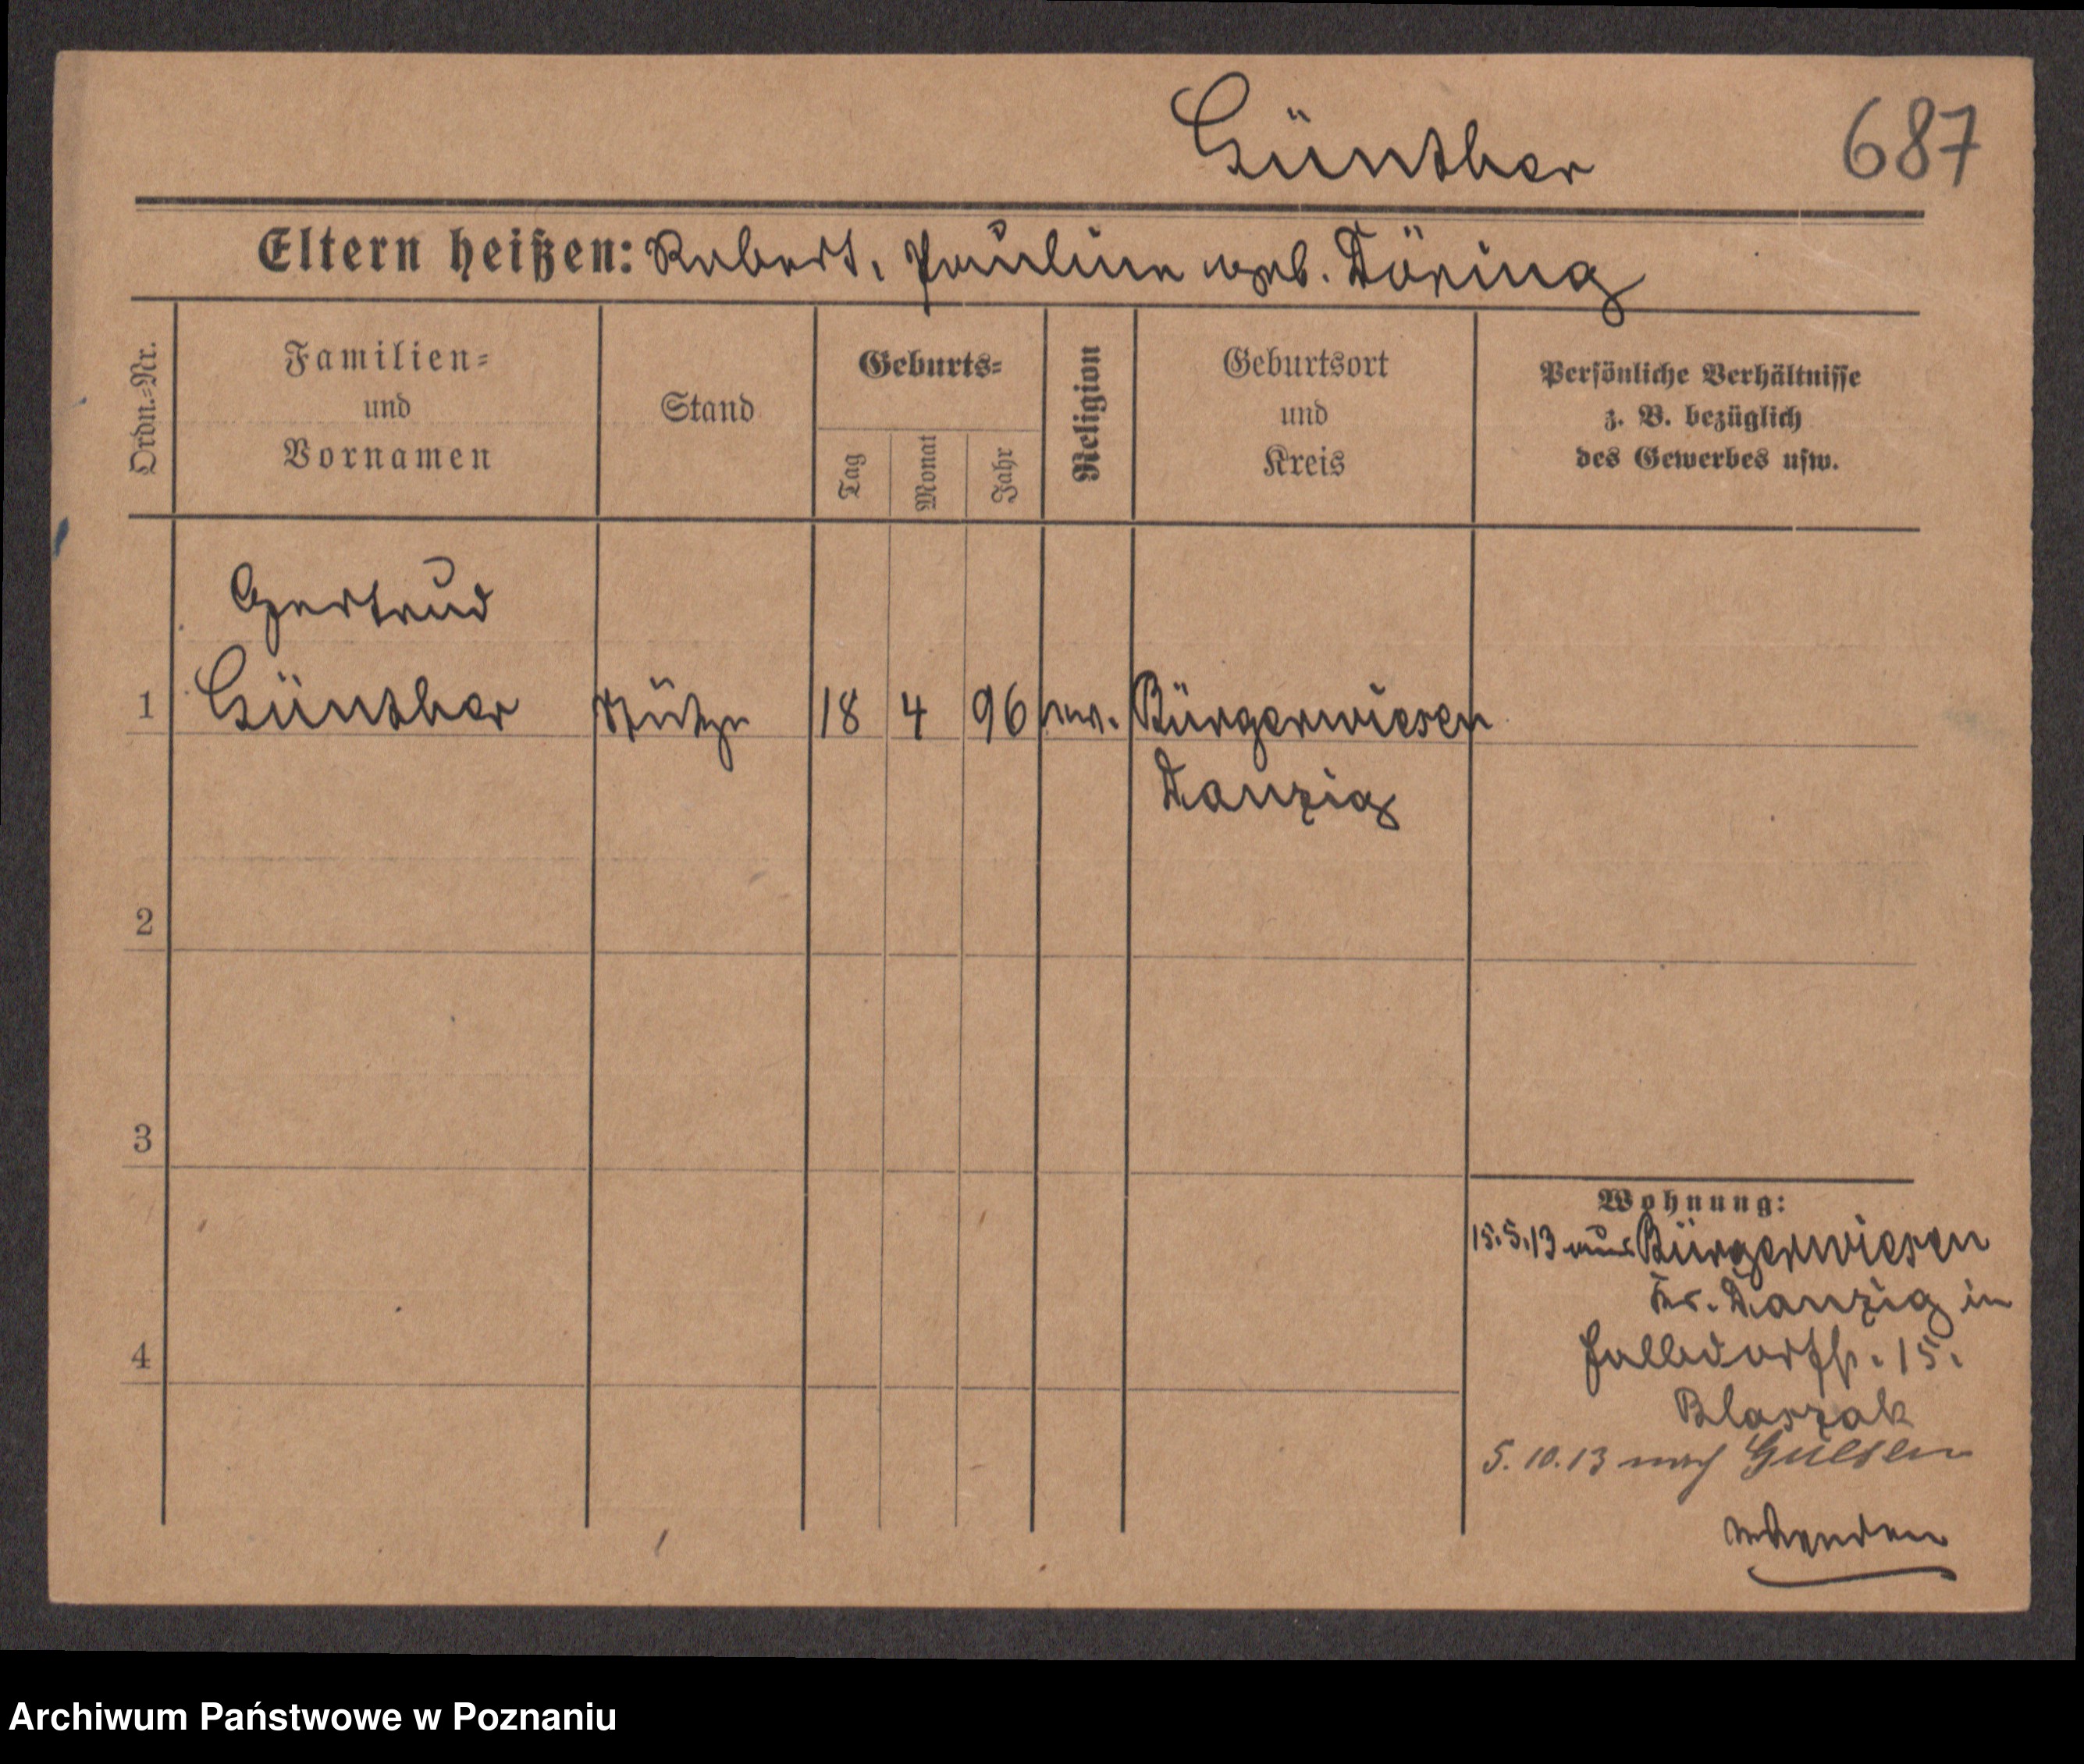 Günther 687
Eltern heißen: Robert, Pauline geb. Döring
Ordn.-Nr.
Familien-
und
Vornamen
Stand
Geburts-
Tag
Monat
Jahr
Religion
Geburtsort
und
Kreis
Persönliche Verhältnisse
z. B. bezüglich
des Gewerbes usw.
Gertrud
1 Günther Stütze 18 4 96 ev. Bürgerwiesen
Danzig
2
3
4
Wohnung:
15.5.13 aus Bürgerwiesen
Kr. Danzig in
15.
Blaszak
5.10.13 nach
wenden
Archiwum Państwowe w Poznaniu